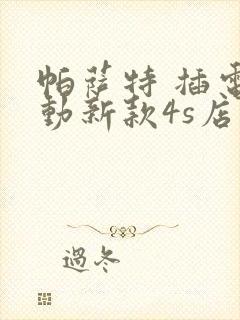 帕萨特 插電
動新款4s店
過冬